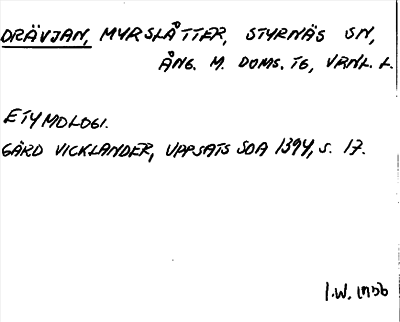 DRÄVJAN, MYRSLÅTTER, STYRNÄS SN,
ÅNG. M. DOMS. TG, VRNL. L.
ETYMOLOGI.
GÄRD VICKLANDER, UPPSATS SOA 1394, S. 17.
I.W. 1956